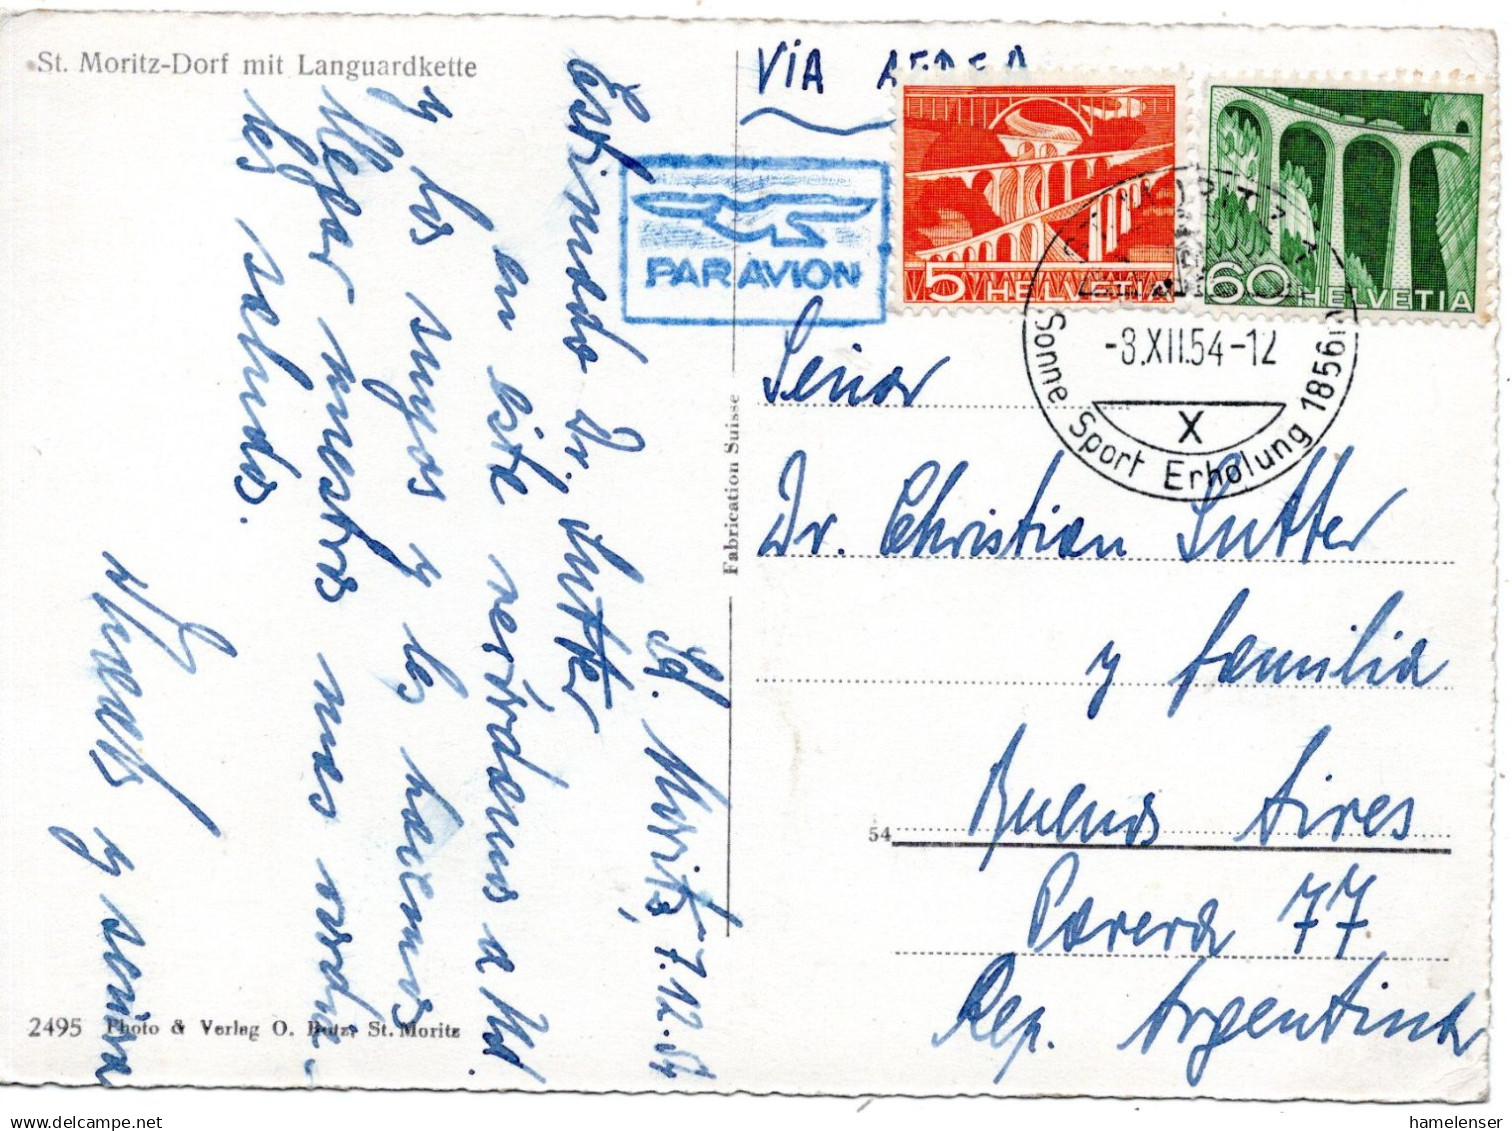 St. Moritz-Dorf mit Languardkette
VIA AEREA
PAR AVION
5 HELVETIA
60 HELVETIA
-8.XII.54-12
X
Sonne Sport Erholung 1856m
Fabrication Suisse
St. Moritz, 7.12.54
Estimado Dr. Sutter
en este recordamos a Ud.
y los suyos y les hacemos
llegar nuestros mas cordia-
les saludos.
y senora
Senor
Dr. Christian Sutter
y familia
54
Buenos Aires
Parera 77
Rep. Argentina
2495 Photo & Verlag O. Rutz, St. Moritz
hamelenser